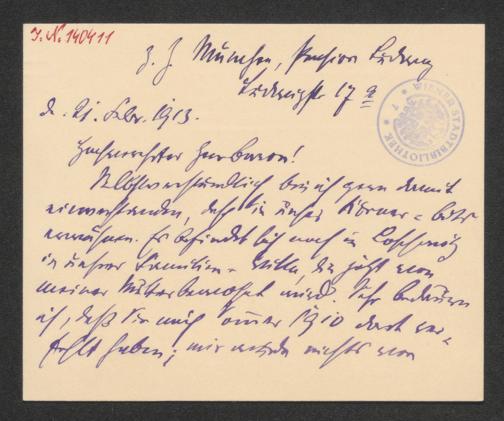 J. N. 140411
z. Z. München, Pension Ludwig
Ludwigstr 17 a
WIENER STADTBIBLIOTHEK
d. 21. Febr. 1913.
Hochverehrter Herr Baron!
Selbstverständlich bin ich gern damit
einverstanden, daß Sie unser Körner=
erwähnen. Er befindet sich noch in Loschwitz
in unsrer Familien=Villa, die jetzt von
meiner Mutter bewohnt wird. Sehr bedauern
ich, daß Sie mich 1910 dort ver=
fehlt haben; mir wurde nichts von